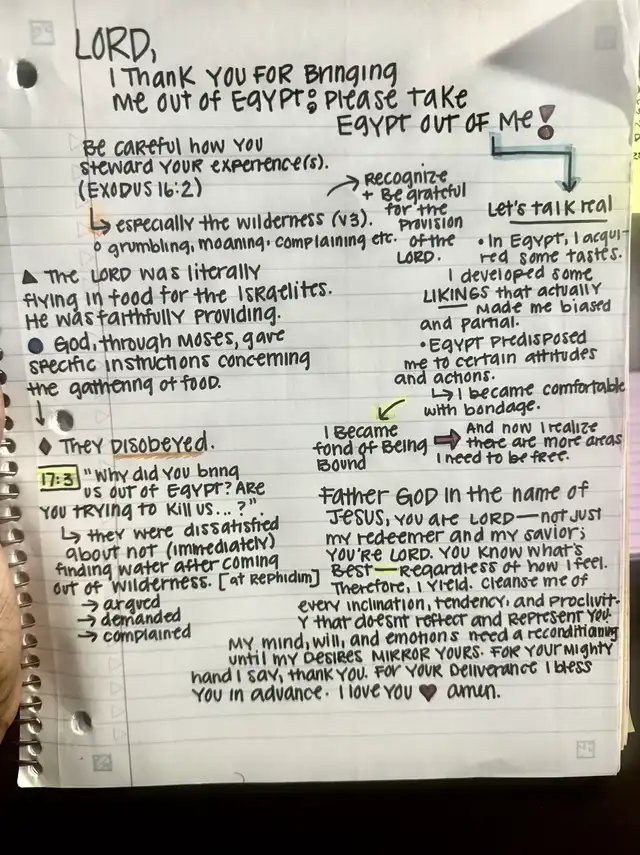 LORD,
I THANK YOU FOR BRINGING
ME OUT OF EGYPT; PLEASE TAKE
EGYPT OUT OF ME!
BE CAREFUL HOW YOU
STEWARD YOUR EXPERIENCE(S).
(EXODUS 16:2)
ESPECIALLY THE WILDERNESS (V3).
GRUMBLING, MOANING, COMPLAINING ETC.
RECOGNIZE
+ BE GRATEFUL
FOR THE
PROVISION
OF THE
LORD.
THE LORD WAS LITERALLY
FLYING IN FOOD FOR THE ISRAELITES.
HE WAS FAITHFULLY PROVIDING.
GOD, THROUGH MOSES, GAVE
SPECIFIC INSTRUCTIONS CONCERNING
THE GATHERING OF FOOD.
THEY DISOBEYED.
17:3 "WHY DID YOU BRING
US OUT OF EGYPT? ARE
YOU TRYING TO KILL US...?".
THEY WERE DISSATISFIED
ABOUT NOT (IMMEDIATELY)
FINDING WATER AFTER COMING
OUT OF WILDERNESS. [AT REPHIDIM]
→ ARGUED
→ DEMANDED
→ COMPLAINED
LET'S TALK REAL
• IN EGYPT, I ACQUI-
RED SOME TASTES.
I DEVELOPED SOME
LIKINGS THAT ACTUALLY
MADE ME BIASED
AND PARTIAL.
• EGYPT PREDISPOSED
ME TO CERTAIN ATTITUDES
AND ACTIONS.
I BECAME COMFORTABLE
WITH BONDAGE.
I BECAME
FOND OF BEING
BOUND
AND NOW I REALIZE
THERE ARE MORE AREAS
I NEED TO BE FREE.
FATHER GOD IN THE NAME OF
JESUS, YOU ARE LORD—NOT JUST
MY REDEEMER AND MY SAVIOR;
YOU'RE LORD. YOU KNOW WHAT'S
BEST—REGARDLESS OF HOW I FEEL.
THEREFORE, I YIELD. CLEANSE ME OF
EVERY INCLINATION, TENDENCY, AND PROCLIVIT-
Y THAT DOESNT REFLECT AND REPRESENT YOU.
MY MIND, WILL, AND EMOTIONS NEED A RECONDITIONING
UNTIL MY DESIRES MIRROR YOURS. FOR YOUR MIGHTY
HAND I SAY, THANK YOU. FOR YOUR DELIVERANCE I BLESS
YOU IN ADVANCE. I LOVE YOU ♥ AMEN.